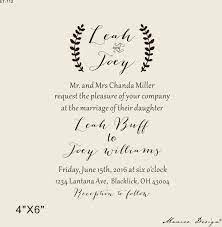 Leah
&
Joey
Mr. and Mrs Chanda Miller
request the pleasure of your company
at the marriage of their daughter
Leah Buff
to
Joey Williams
Friday, June 15th, 2016 at six o'clock
1234 Lantana Ave, Blacklick, OH 43004
Reception to follow
4"X6"
Design